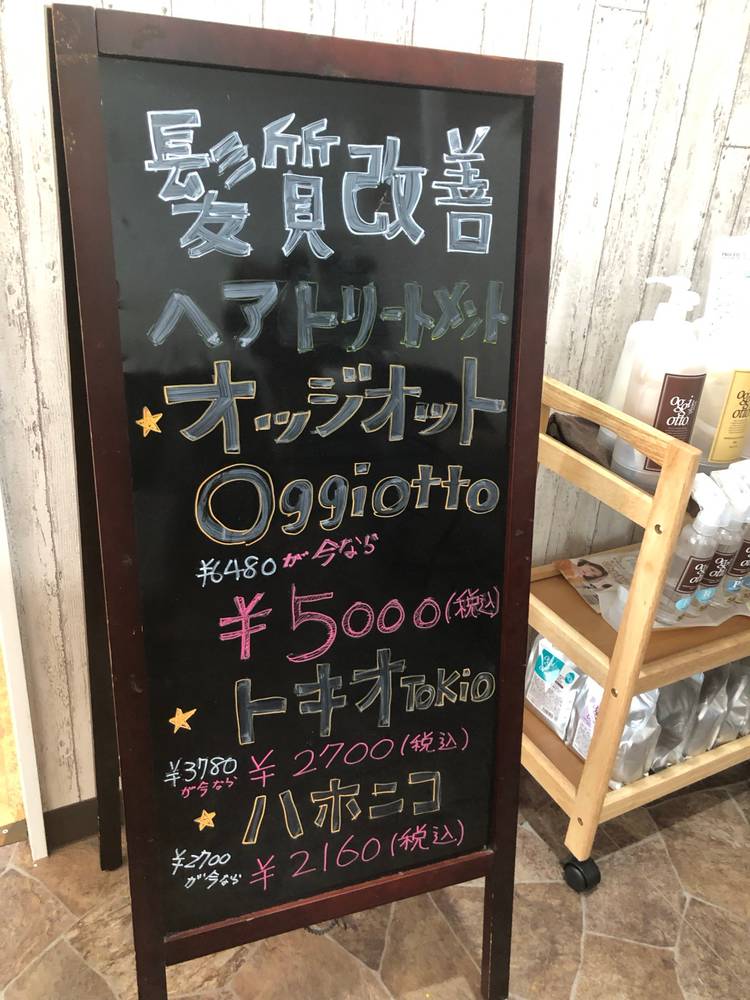 髪質改善
ヘアトリートメント
オッジオット
Oggiotto
¥6480が今なら
¥5000(税込)
トキオTOKIO
¥3780 ¥2700(税込)
が今なら
ハホニコ
¥2700 ¥2160(税込)
が今なら
oggi
otto
oggi
otto
oggi
otto
oggi
otto